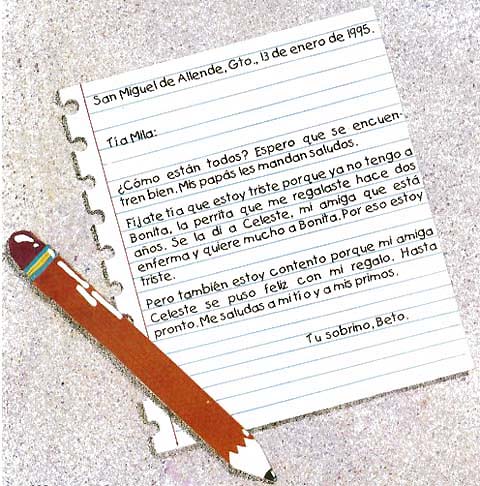 San Miguel de Allende, Gto., 13 de enero de 1995.
Tía Mila:
¿Cómo están todos? Espero que se encuen-
tren bien. Mis papás les mandan saludos.
Fíjate tía que estoy triste porque ya no tengo a
Bonita, la perrita que me regalaste hace dos
años. Se la di a Celeste, mi amiga que está
enferma y quiere mucho a Bonita. Por eso estoy
triste.
Pero también estoy contento porque mi amiga
Celeste se puso feliz con mi regalo. Hasta
pronto. Me saludas a mi tío y a mis primos.
Tu sobrino, Beto.